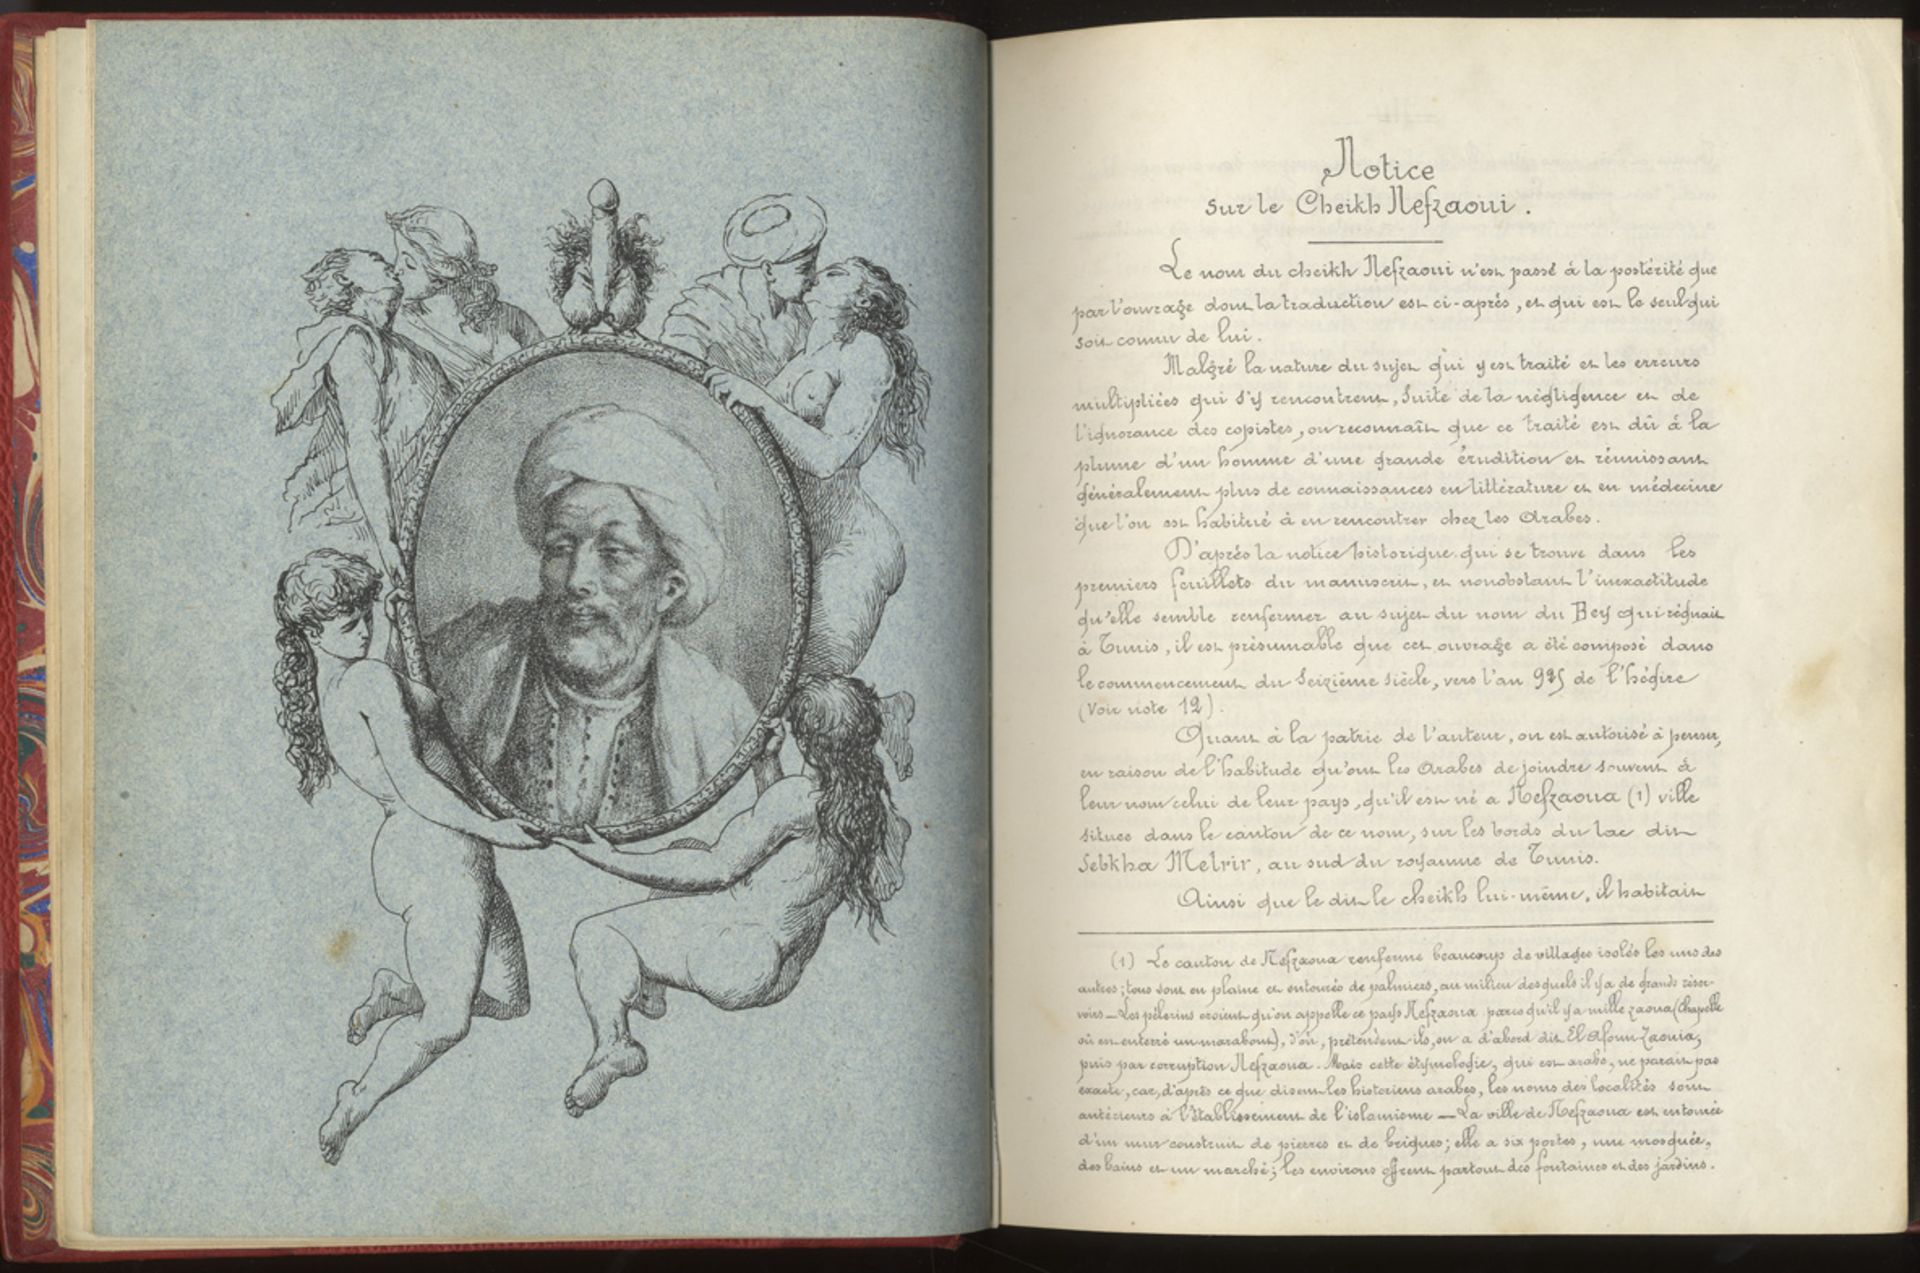 Notice
sur le Cheikh Nefzaoui.
Le nom du cheikh Nefzaoui n'est passé à la postérité que
par l'ouvrage dont la traduction est ci-après, et qui est le seul qui
soit connu de lui.
Malgré la nature du sujet qui y est traité et les erreurs
multipliées qui s'y rencontrent, suite de la négligence et de
l'ignorance des copistes, on reconnaît que ce traité est dû à la
plume d'un homme d'une grande érudition et réunissant
généralement plus de connaissances en littérature et en médecine
que l'on est habitué à en rencontrer chez les Arabes.
D'après la notice historique qui se trouve dans les
premiers feuillets du manuscrit, et nonobstant l'inexactitude
qu'elle semble renfermer au sujet du nom du Bey qui régnait
à Tunis, il est présumable que cet ouvrage a été composé dans
le commencement du seizième siècle, vers l'an 925 de l'hégire
(Voir note 12).
Quant à la patrie de l'auteur, on est autorisé à penser,
en raison de l'habitude qu'ont les Arabes de joindre souvent à
leur nom celui de leur pays, qu'il est né a Nefzaoua (1) ville
située dans le canton de ce nom, sur les bords du lac dit
Sebkha Melrir, au sud du royaume de Tunis.
Ainsi que le dit le cheikh lui-même, il habitait
(1) Le canton de Nefzaoua renferme beaucoup de villages isolés les uns des
autres; tous sont en plaine et entourés de palmiers, au milieu desquels il y a de grands réser-
voirs — Les pèlerins croient qu'on appelle ce pays Nefzaoua parce qu'il y a mille zaoua (Chapelle
où est enterré un marabout), d'où, prétendent-ils, on a d'abord dit El Afoun Zaouia,
puis par corruption Nefzaoua. Mais cette étymologie, qui est arabe, ne parait pas
exacte, car, d'après ce que disent les historiens arabes, les noms des localités sont
antérieurs à l'établissement de l'islamisme — La ville de Nefzaoua est entourée
d'un mur construit de pierres et de briques; elle a six portes, une mosquée,
des bains et un marché; les environs offrent partout des fontaines et des jardins.